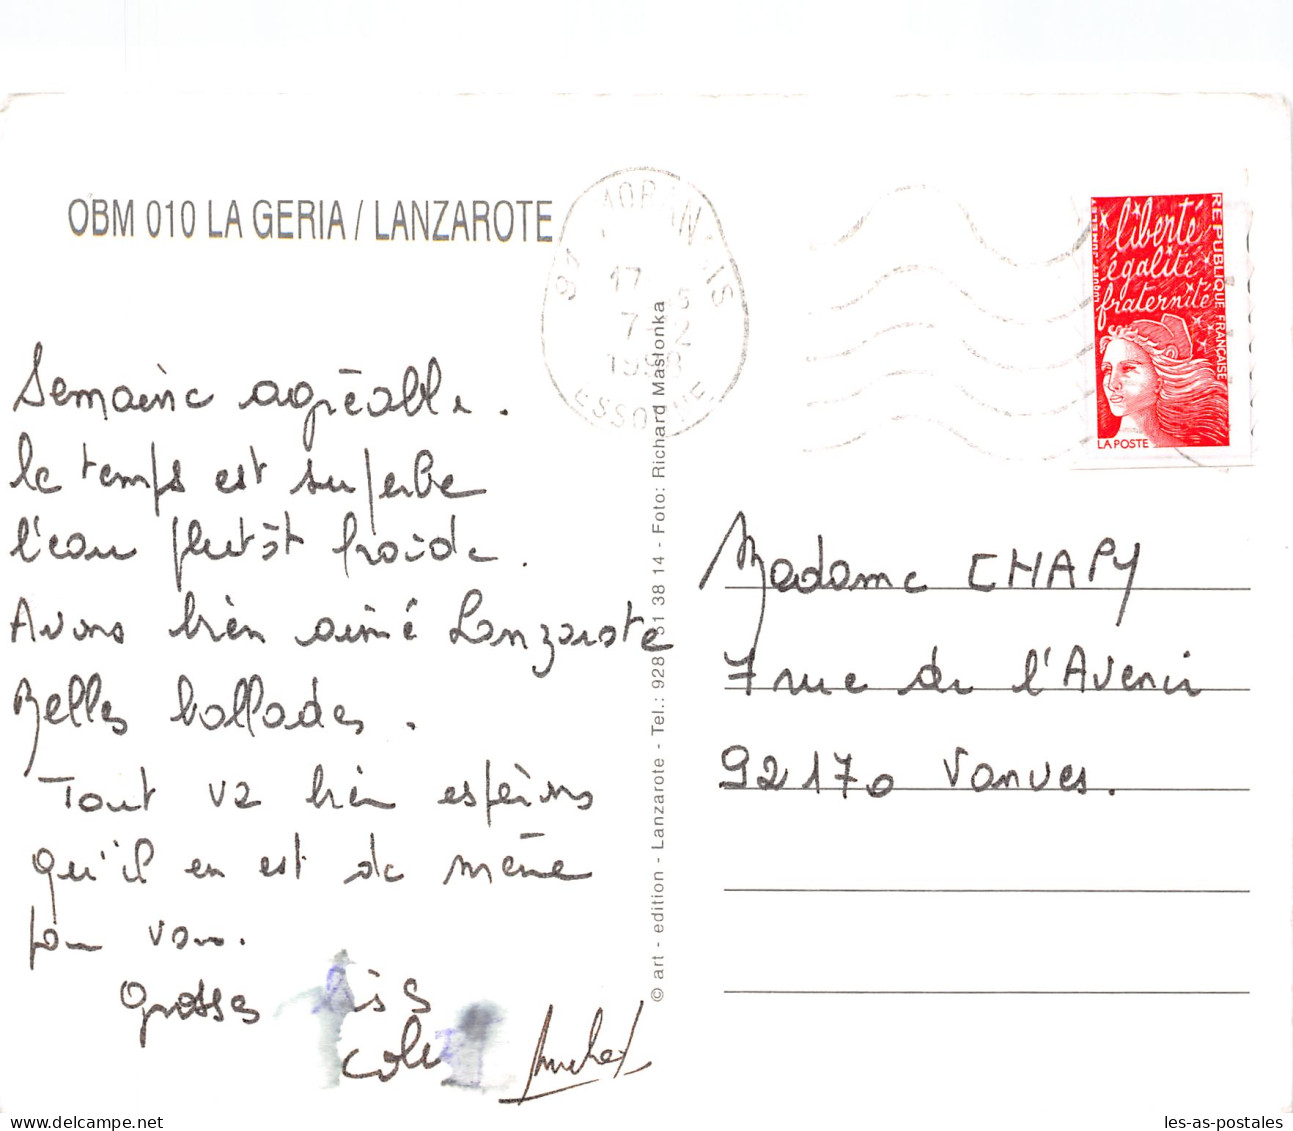 OBM 010 LA GERIA / LANZAROTE
Semaine agréable.
le temps est superbe
l'eau plutôt froide.
Avons bien aimé Lanzarote
Belles ballades.
Tout va bien espérons
qu'il en est de même
pour vous.
Grosses Bises
Michel
© art - edition - Lanzarote - Tel.: 928 51 38 14 - Foto: Richard Masłonka
17
7-12
1998
ESSONNE
liberté
égalité
fraternité
REPUBLIQUE FRANÇAISE
LUQUET JUMELET
LA POSTE
Madame CHAPY
7 rue de l'Avenir
92170 Vanves.
les-as-postales